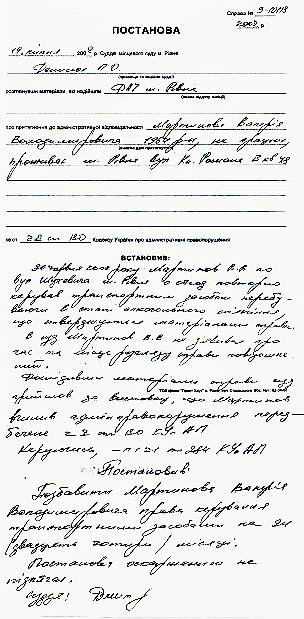 Справа № 3-10113
2009 р
ПОСТАНОВА
2009 р. Суддя місцевого суду м. Рівне
(прізвище та ініціали судді)
розглянувши матеріали, які надійшли ДАІ м. Рівне
(назва органу)
про притягнення до адміністративної відповідальності Мартинова Валерія
Володимировича 1964 р.н.,
проживає м. Рівне вул Кн. Романа
за ст. 2 ст 130 Кодексу України про адміністративні правопорушення
ВСТАНОВИВ:
року Мартинов В.В по
вул м. Рівне повторно
керував транспортним засобом перебу-
ваючи в стані алкогольного сп'яніння
що стверджується матеріалами справи.
В суд Мартинов В.В не з'явився про
час та місце розгляду справи повідомле-
ний.
Дослідивши матеріали справи суд
прийшов до висновку, що Мартинов
вчинив адмінправопорушення перед-
бачене ч 2 ст 130 КУпАП
Керуючись, ст 284 КУпАП
Постановив:
Позбавити Мартинова Валерія
Володимировича права керування
транспортними засобами на 24
/двадцять чотири/ місяці.
Постанова оскарженню не
підлягає.
Суддя: